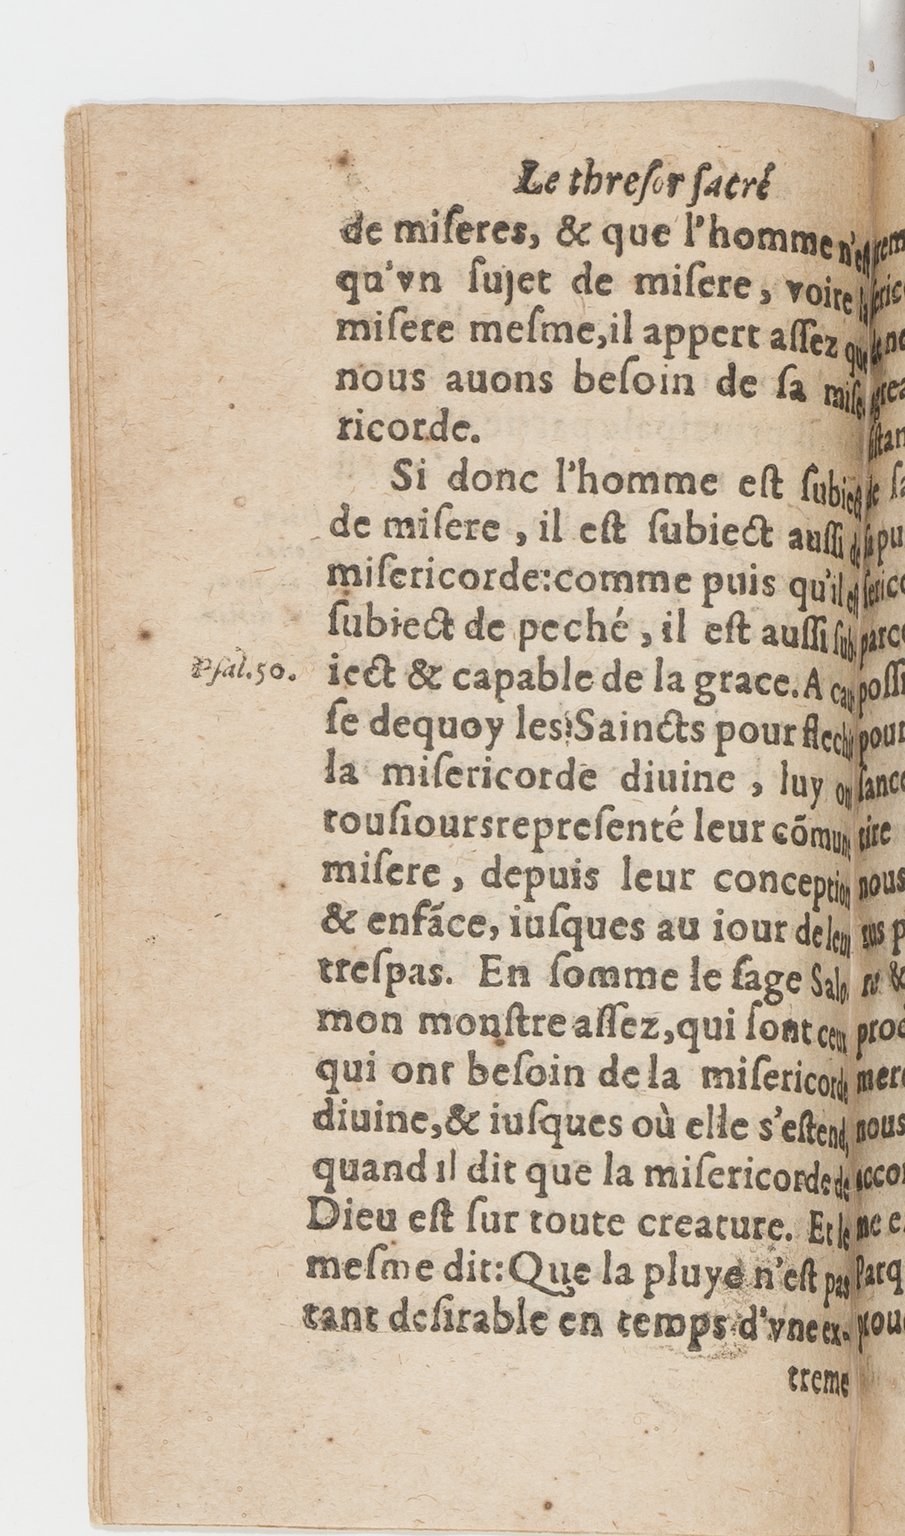 Le thresor sacré
de miseres, & que l'homme n'est
qu'vn sujet de misere, voire la
misere mesme,il appert assez que
nous auons besoin de sa mise-
ricorde.
Si donc l'homme est subiect
de misere , il est subiect aussi de
misericorde:comme puis qu'il est
subiect de peché , il est aussi sub-
Psal.50.
iect & capable de la grace. A cau
se dequoy les Saincts pour flechir
la misericorde diuine , luy ont
tousioursrepresenté leur cõmune
misere , depuis leur conception
& enfãce, iusques au iour de leur
trespas. En somme le sage Salo-
mon monstre assez,qui sont ceux
qui ont besoin de la misericorde
diuine,& iusques où elle s'estend,
quand il dit que la misericorde de
Dieu est sur toute creature. Et le
mesme dit:Que la pluye n'est pas
tant desirable en temps d'vne ex-
treme